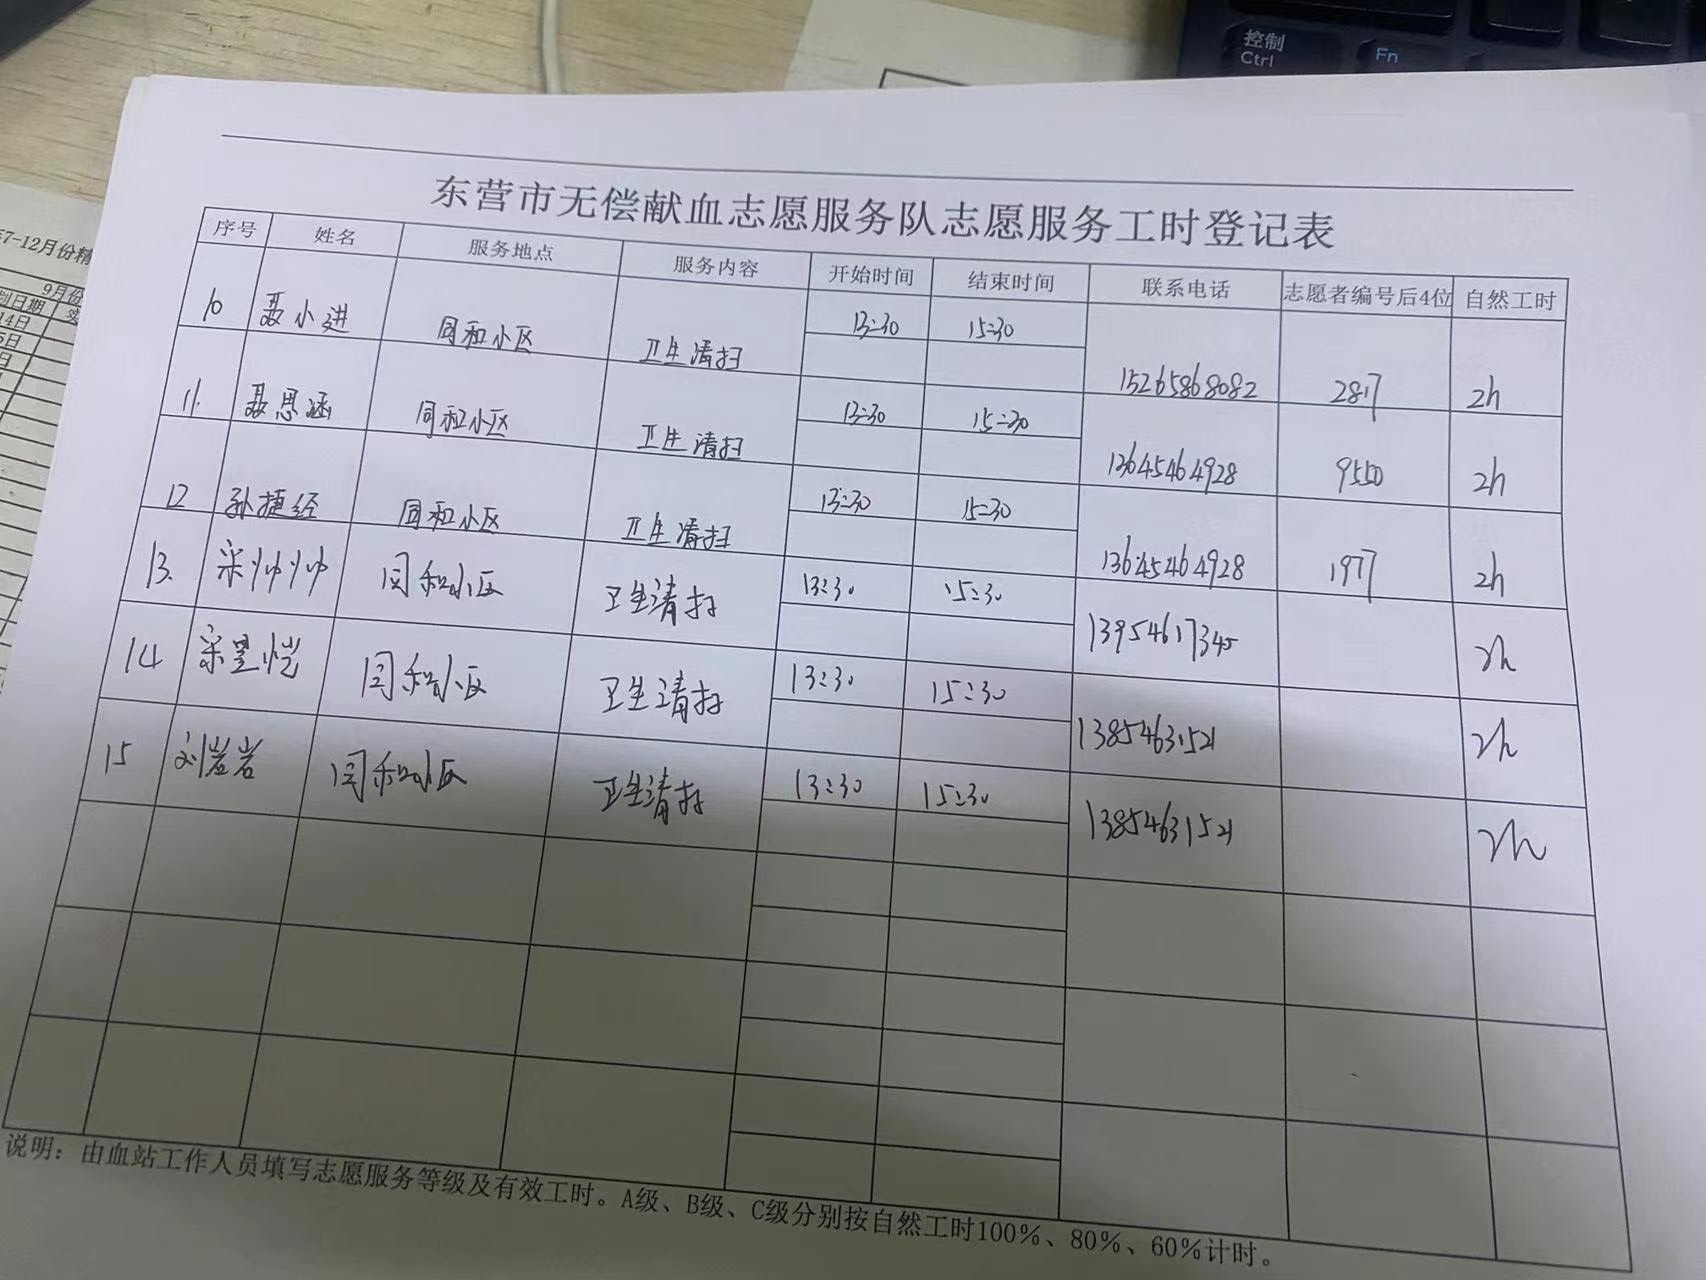 控制
Ctrl
Fn
7-12月份精
9月份
划日期 实
14日
5日
日
东营市无偿献血志愿服务队志愿服务工时登记表
序号 姓名 服务地点 服务内容 开始时间 结束时间 联系电话 志愿者编号后4位 自然工时
10 聂小进 同和小区 卫生清扫 13:30 15:30 15265868082 2817 2h
11. 聂思涵 同和小区 卫生清扫 13:30 15:30 13645464928 9550 2h
12 孙捷经 同和小区 卫生清扫 13:30 15:30 13645464928 1977 2h
13. 宋帅帅 同和小区 卫生清扫 13:30 15:30 13954617345 2h
14 宋昱恺 同和小区 卫生清扫 13:30 15:30 13854631521 2h
15 刘岩岩 同和小区 卫生清扫 13:30 15:30 13854631521 2h
说明：由血站工作人员填写志愿服务等级及有效工时。A级、B级、C级分别按自然工时100%、80%、60%计时。